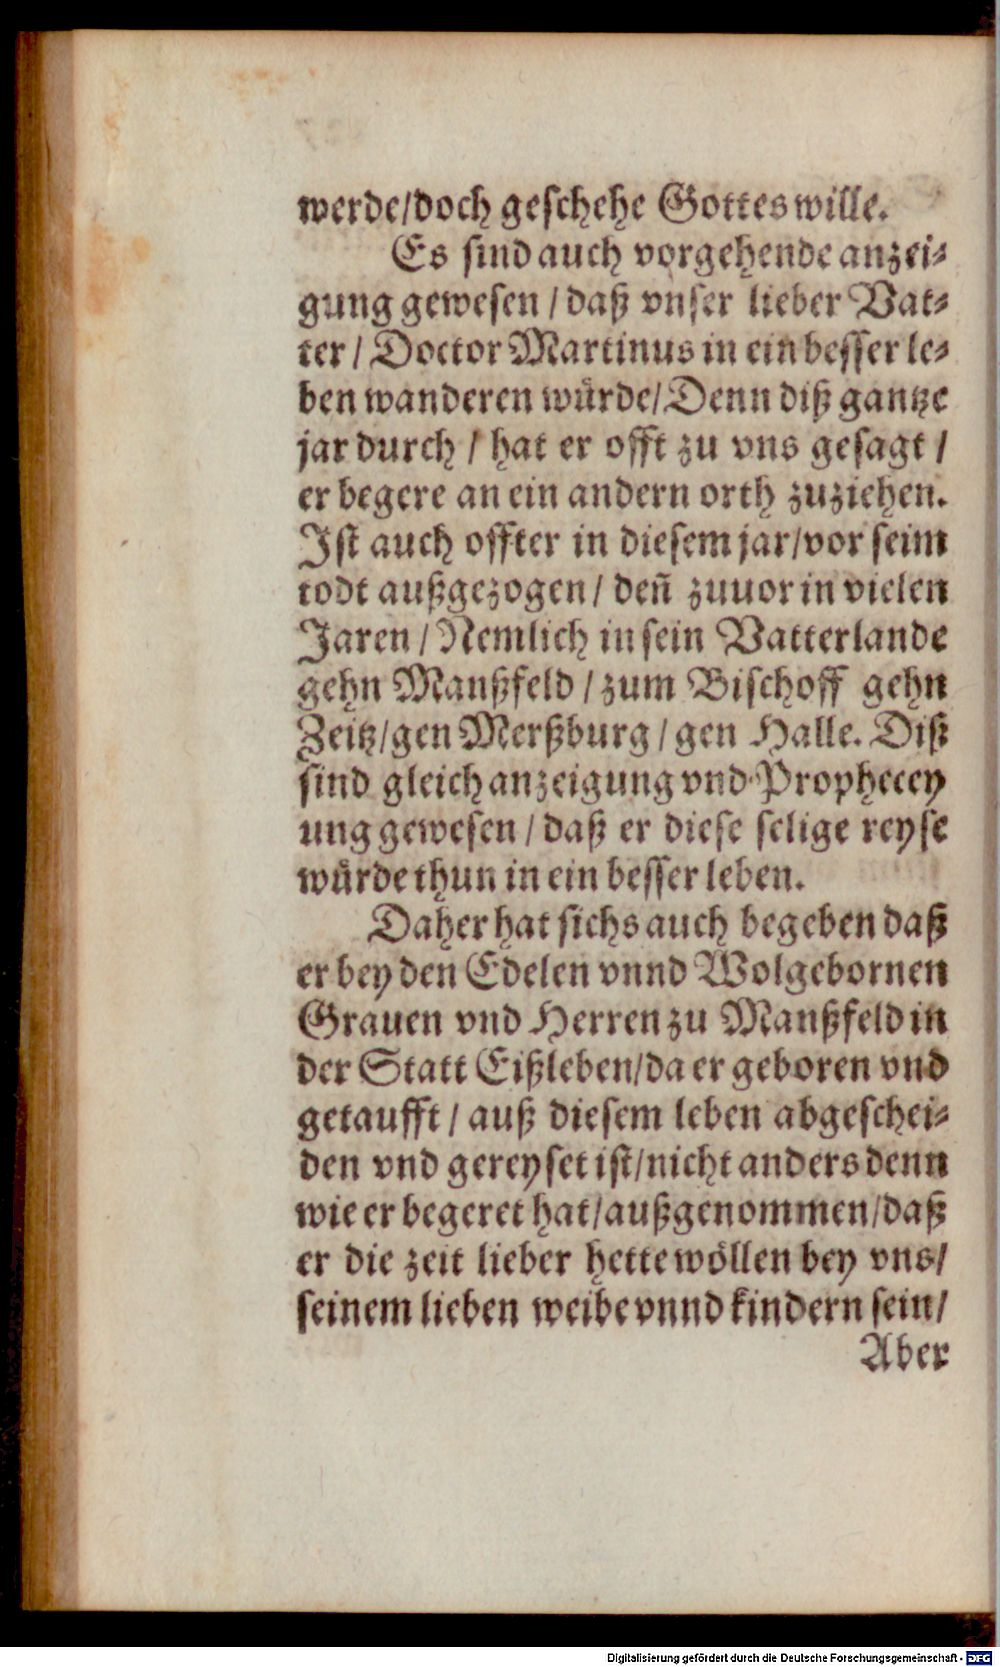 werde/doch geschehe Gottes wille.
Es sind auch vorgehende anzei-
gung gewesen / daß vnser lieber Vat-
ter / Doctor Martinus in ein besser le-
ben wanderen würde/Denn diß gantze
jar durch / hat er offt zu vns gesagt /
er begere an ein andern orth zuziehen.
Ist auch offter in diesem jar/vor seim
todt außgezogen / deñ zuuor in vielen
Jaren / Nemlich in sein Vatterlande
gehn Manßfeld / zum Bischoff gehn
Zeitz/gen Merßburg / gen Halle. Diß
sind gleich anzeigung vnd Prophecey
ung gewesen / daß er diese selige reyse
würde thun in ein besser leben.
Daher hat sichs auch begeben daß
er bey den Edelen vnnd Wolgebornen
Grauen vnd Herren zu Manßfeld in
der Statt Eißleben/da er geboren vnd
getaufft / auß diesem leben abgeschei-
den vnd gereyset ist/nicht anders denn
wie er begeret hat/außgenommen/daß
er die zeit lieber hette wöllen bey vns/
seinem lieben weibe vnnd kindern sein/
Aber
Digitalisierung gefördert durch die Deutsche Forschungsgemeinschaft - DFG